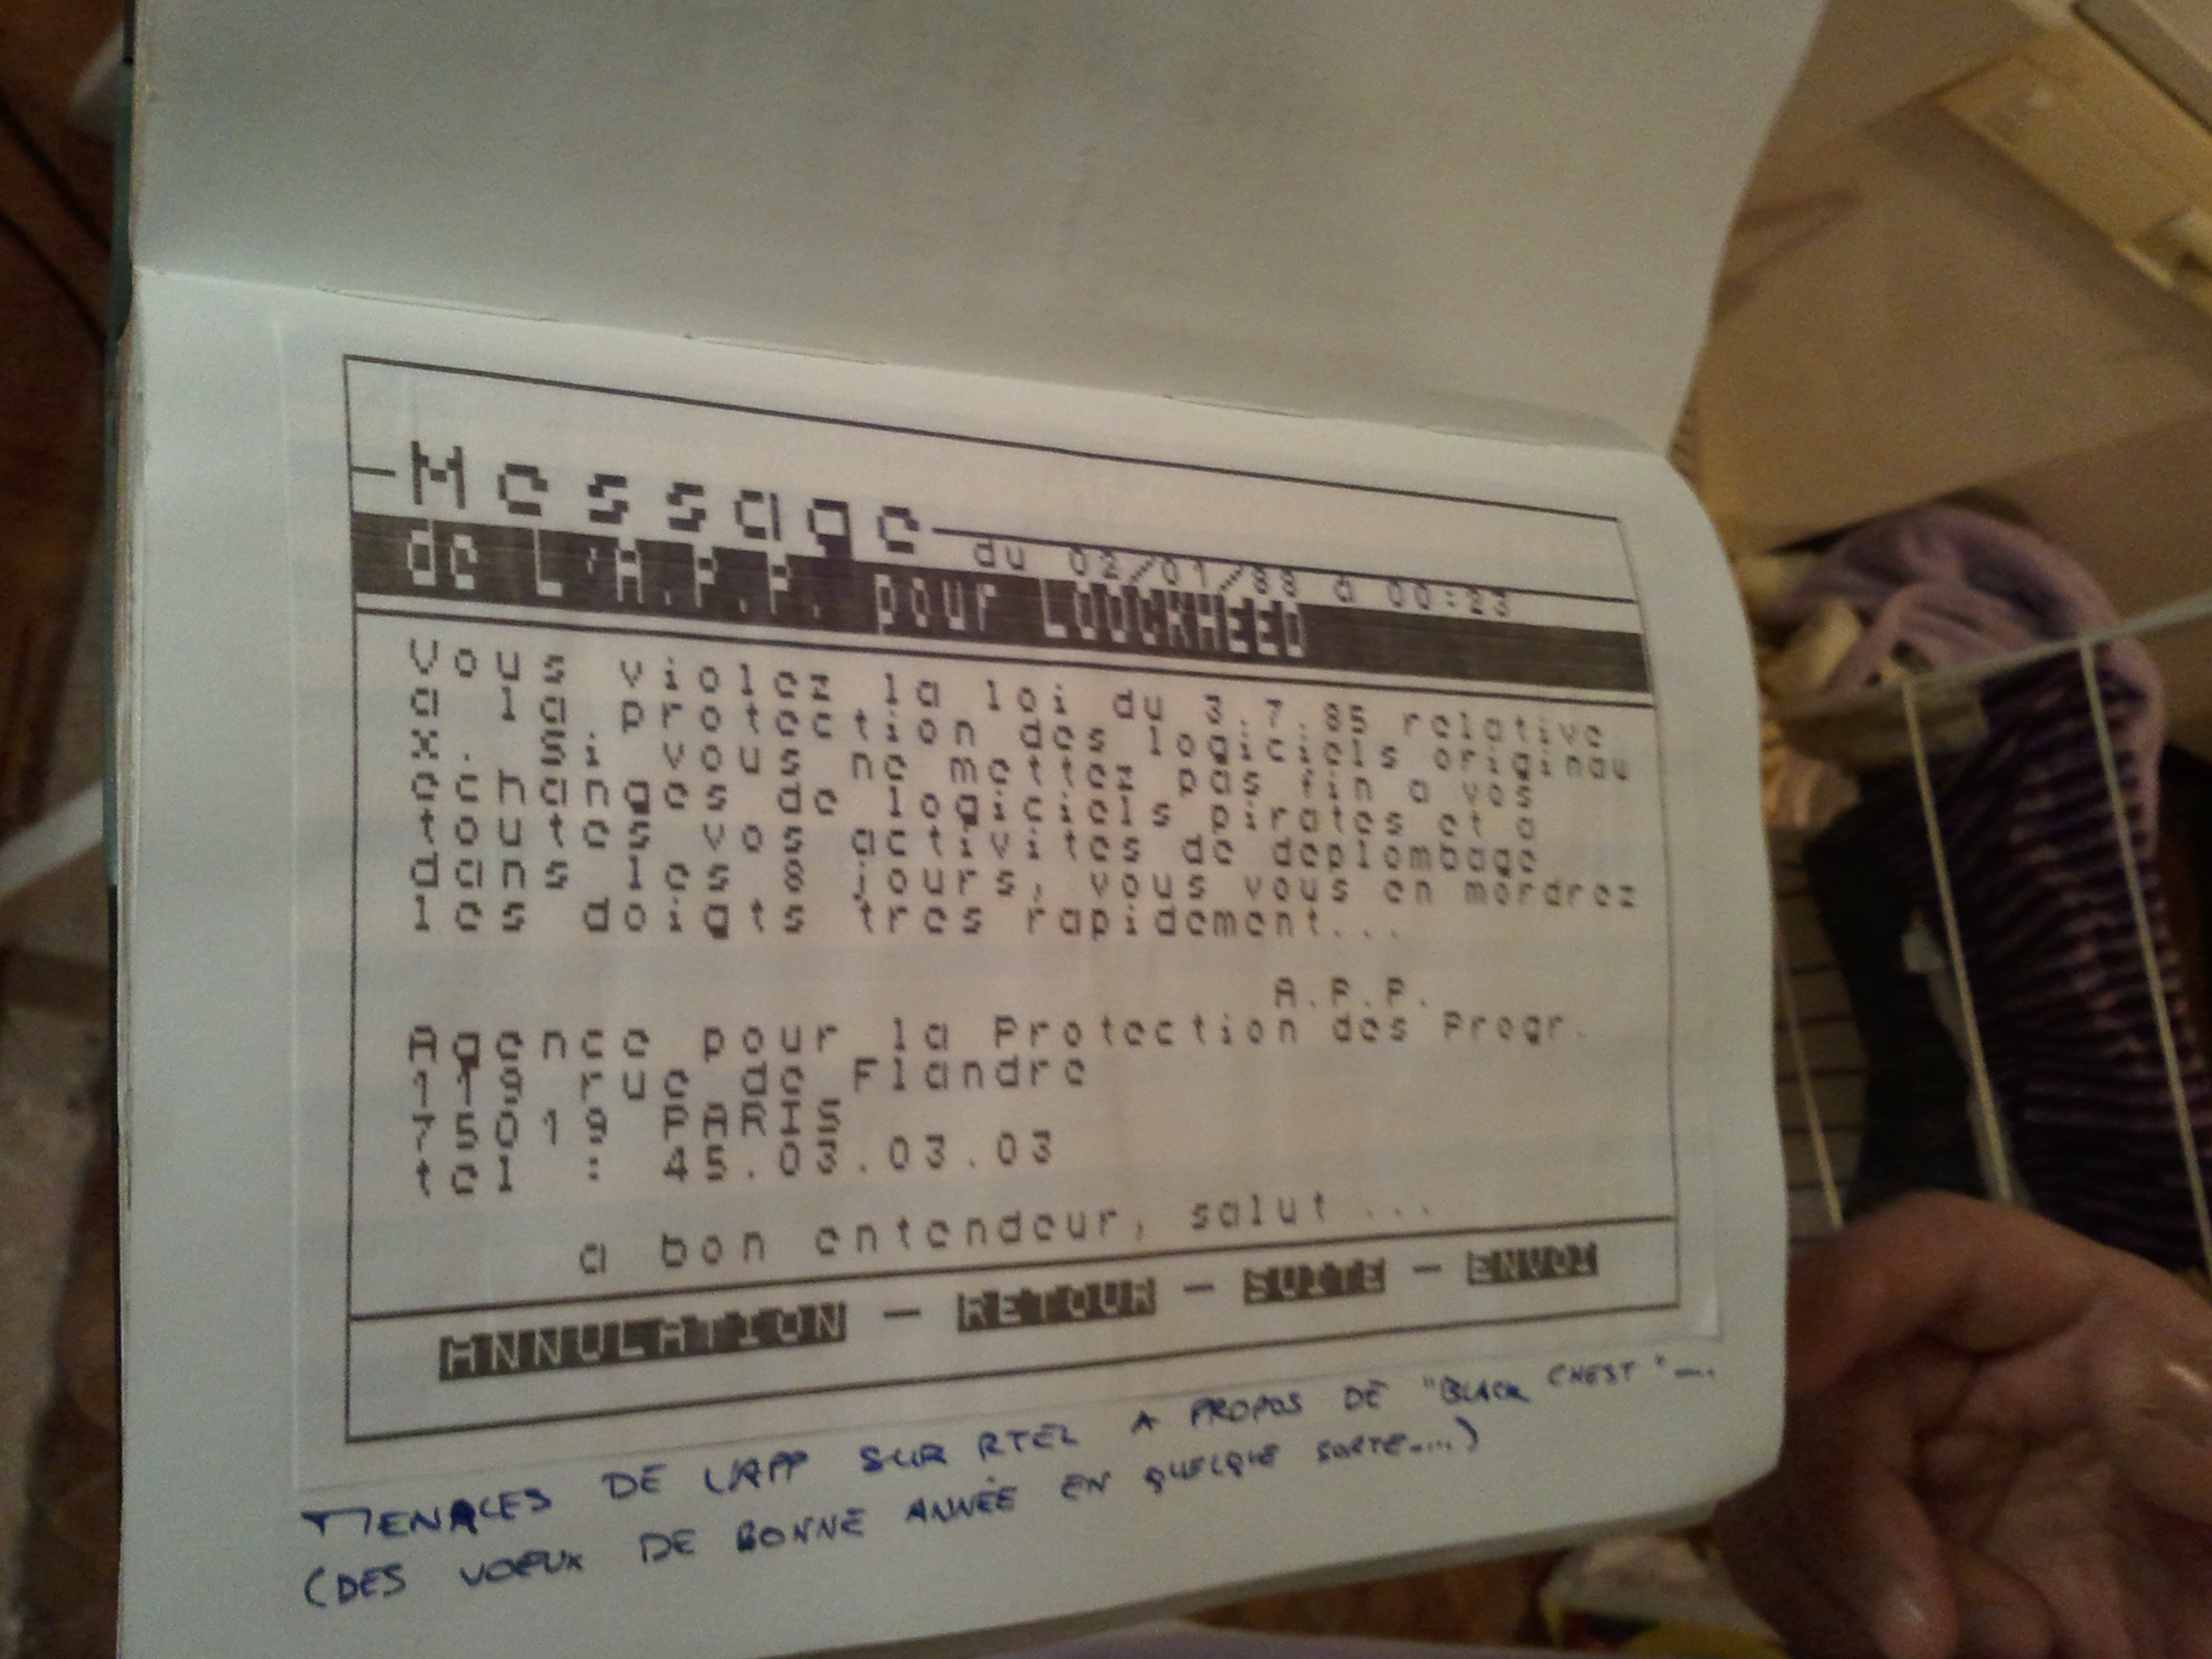 Message
du 02/01/88 a 00:23
de L'A.P.P. pour LOOCKHEED
Vous violez la loi du 3.7.85 relative
a la protection des logiciels originau
x. Si vous ne mettez pas fin a vos
echanges de logiciels pirates et a
toutes vos activites de deplombage
dans les 8 jours, vous vous en mordrez
les doigts tres rapidement...
A.P.P.
Agence pour la Protection des Progr.
119 rue de Flandre
75019 PARIS
tel : 45.03.03.03
a bon entendeur, salut ...
ANNULATION - RETOUR - SUITE - ENVOI
MENACES DE L'APP SUR RTEL A PROPOS DE "BLACK CHEST"...
(DES VOEUX DE BONNE ANNÉE EN QUELQUE SORTE....)